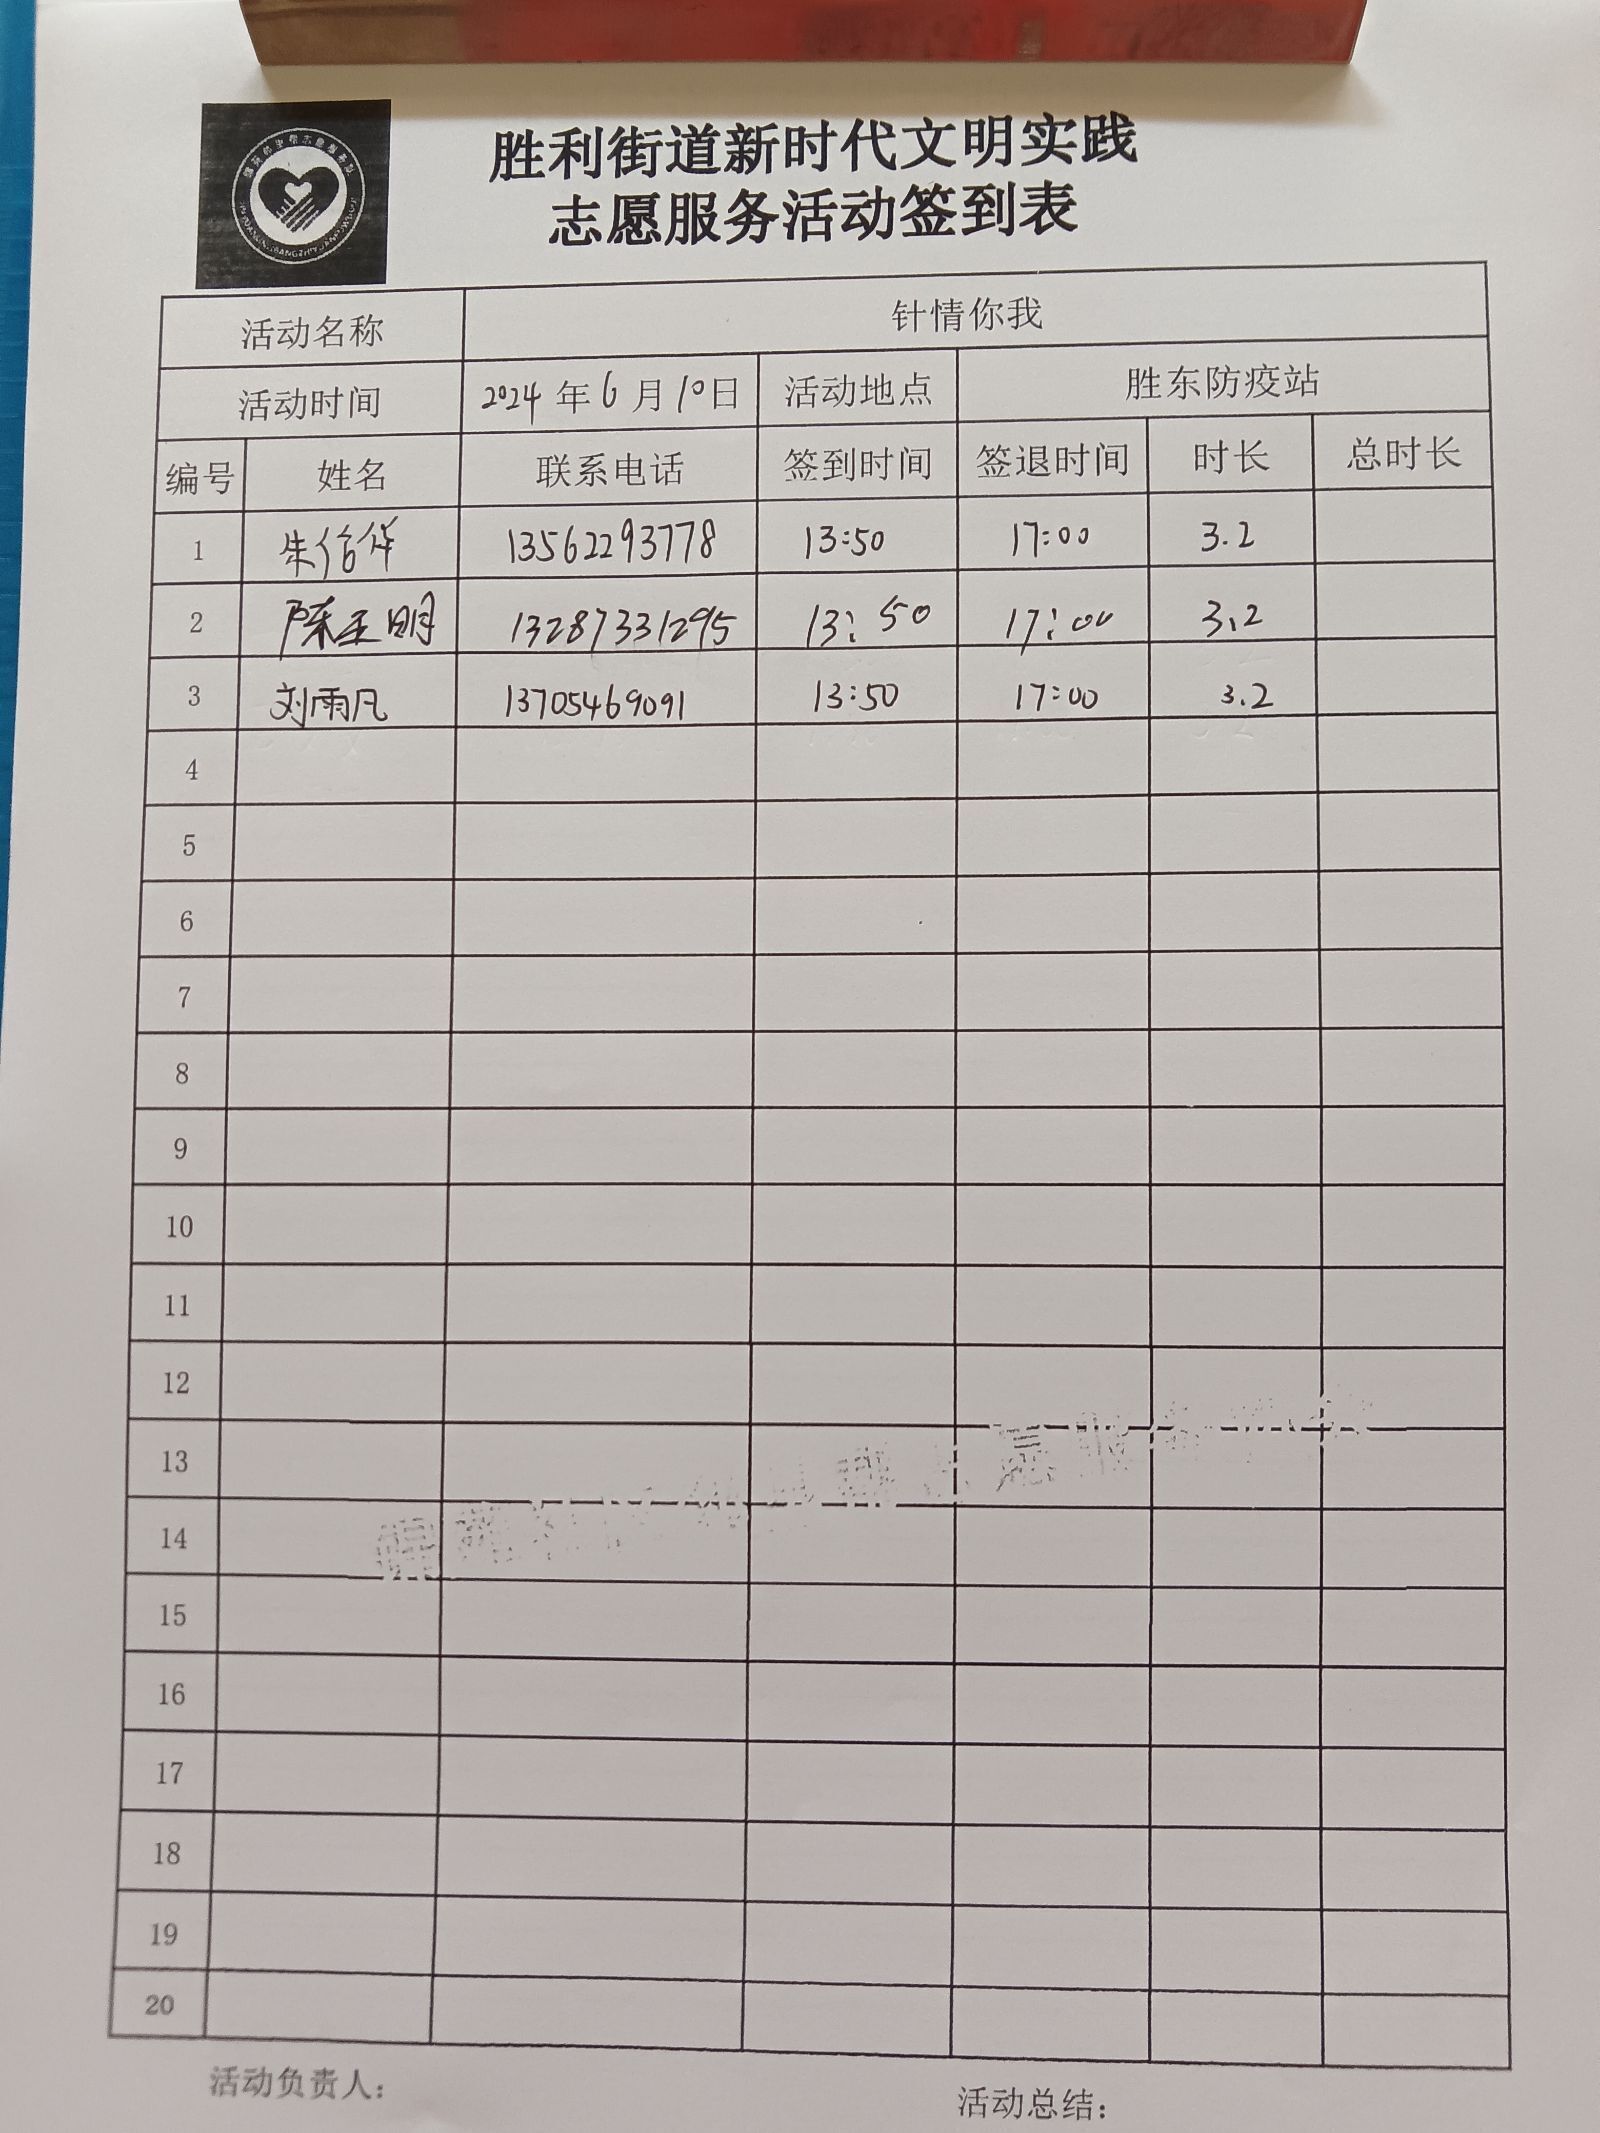 胜利街道新时代文明实践
志愿服务活动签到表
活动名称 针情你我
活动时间 2024年6月10日 活动地点 胜东防疫站
编号 姓名 联系电话 签到时间 签退时间 时长 总时长
1 朱信华 13562293778 13:50 17:00 3.2
2 陈玉明 13287331295 13:50 17:00 3.2
3 刘雨凡 13705469091 13:50 17:00 3.2
4
5
6
7
8
9
10
11
12
13
14
15
16
17
18
19
20
活动负责人:
活动总结: